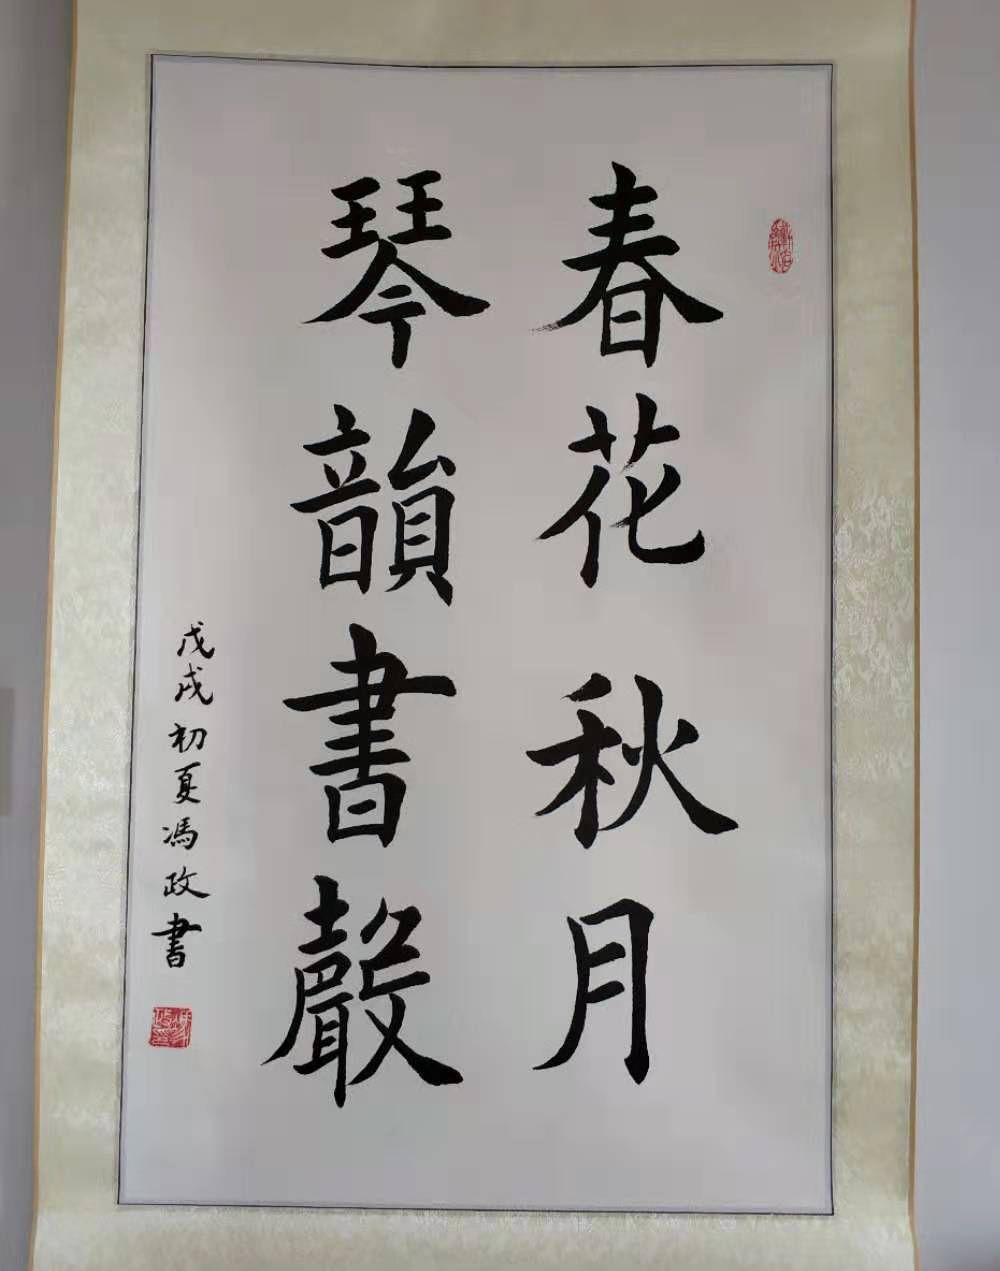 春花秋月
琴韻書聲
戊戌初夏馮政書